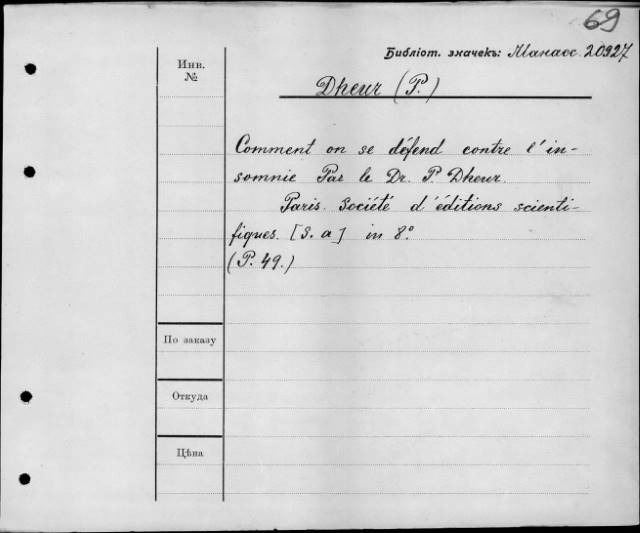 69
Библіот. значекъ: Манасс. 20927
Инв.
№
Dheur (P.)
Comment on se défend contre l'in-
somnie Par le Dr. P. Dheur.
Paris. Société d'éditions scienti-
fiques. [S. a] in 8°.
(P. 49.)
По заказу
Откуда
Цѣна